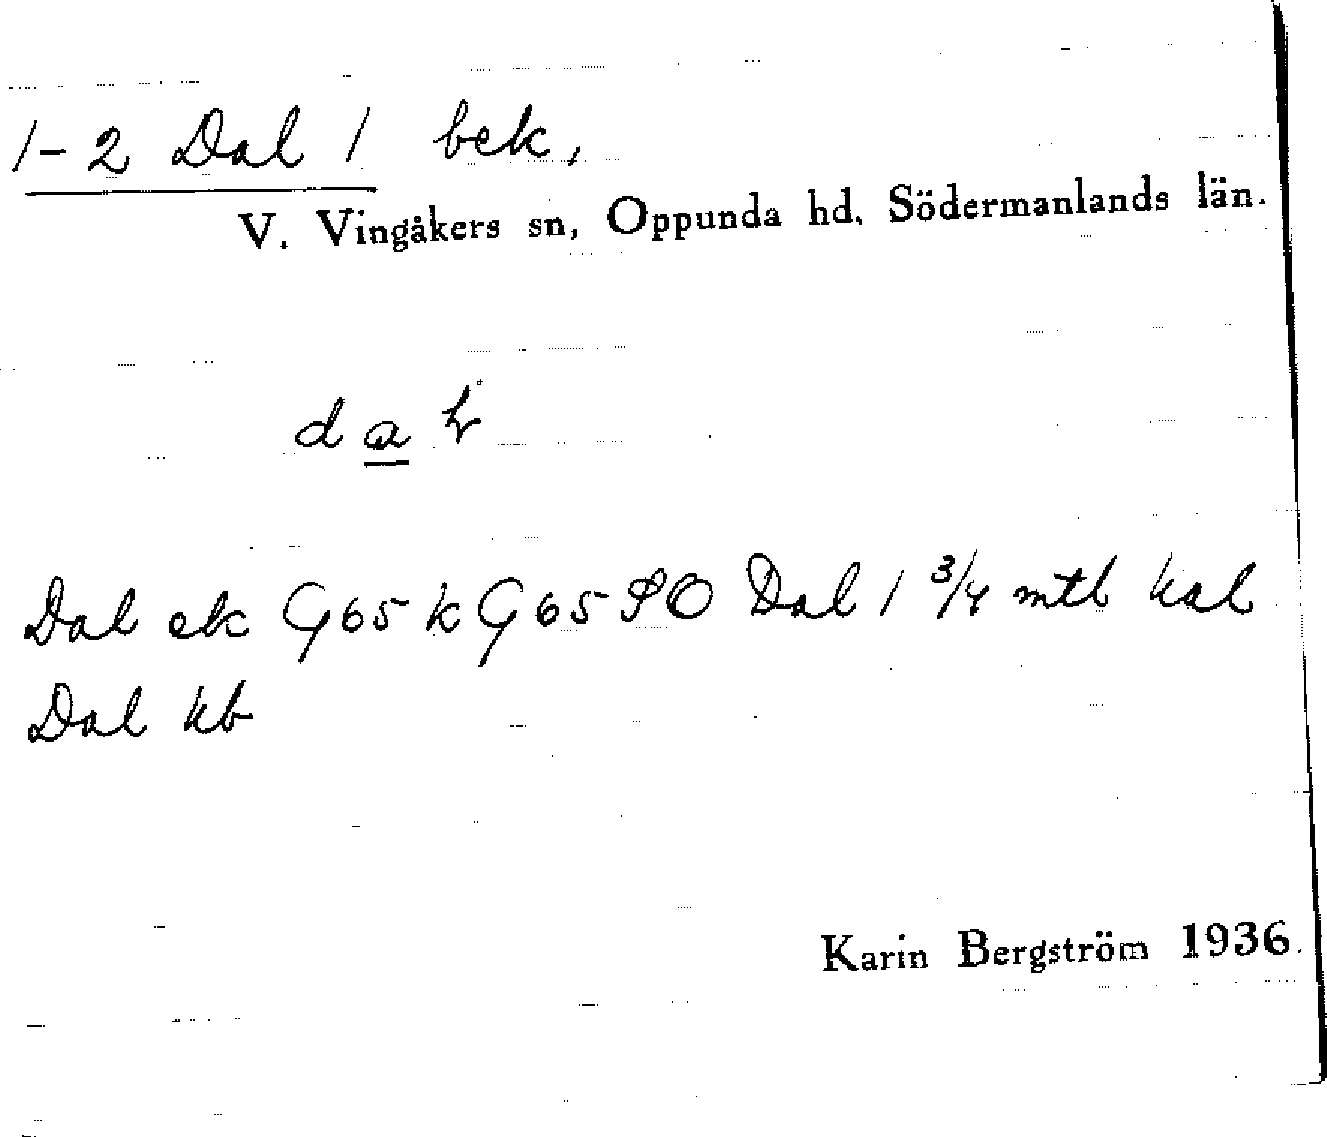 1-2 Dal 1 bek,
V. Vingåkers sn, Oppunda hd. Södermanlands län.
d a
Dal ek G65 k G65 SO Dal 1 3/4 mtl kal
Dal kb
Karin Bergström 1936.